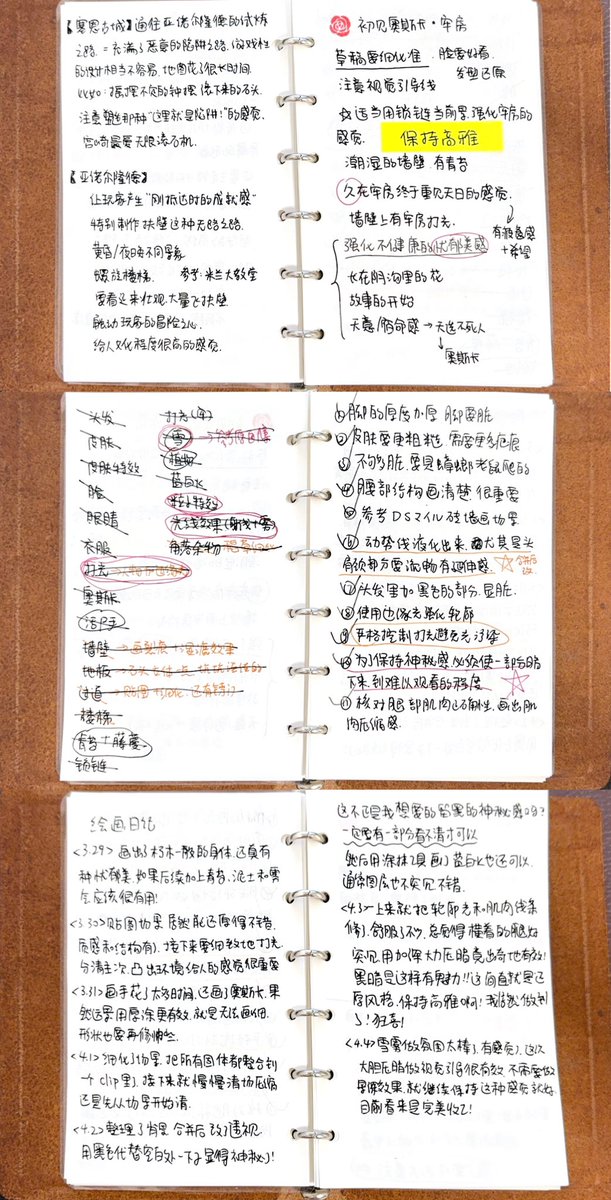 【塞恩古城】通往亚诺尔隆德的试炼
之路 = 充满了恶意的陷阱之路，游戏性
的设计相当不容易，地图花了很长时间
摇摆不定的钟摆 滚下来的石头
注意塑造那种“这里就是陷阱！”的感觉
宫崎最爱无限滚石机.
【亚诺尔隆德】
让玩家产生“刚抵达时的成就感”
特别制作扶壁这种无路之路.
黄昏/夜晚不同景象
螺旋楼梯 参考：米兰大教堂
要看起来壮观.大量飞扶壁
挑动玩家的冒险之心
给人文化程度很高的感觉.
初见奥斯卡·牢房
草稿要细化准 脸要好看.
发型还原
注意视觉引导线
☆适当用锁链当前景.强化牢房的
感觉. 保持高雅
潮湿的墙壁 有青苔
久在牢房终于重见天日的感觉.
墙壁上有牢房打光.
有被逼感
+希望
强化不健康的忧郁美感
长在阴沟里的花
故事的开始
天意/宿命感 → 天选不死人
奥斯卡
头发 打光(牢)
皮肤 雪
皮肤特效 植物
脸 蓝白水
眼睛 粒子特效
衣服
打光
奥斯卡
活尸王
墙壁 →
地板 →
过道 →
楼梯
青苔+藤蔓
锁链
①脚的厚度加厚 脚要脏
②皮肤要更粗糙 需要更多疤痕
③不够脏.要具蟑螂老鼠爬的
④腰部结构画清楚 很重要
⑤参考DSマイル 砖墙画场景
⑥动势线液化出来.尤其是头
肩颈部分要流畅有延伸感. ☆合并后
改.
⑦头发里加黑色的部分.显脏.
⑧使用边缘光强化轮廓
⑨严格控制打光避免光污染
⑩为了保持神秘感必须使一部分暗
下来到难以观看的程度 ☆
⑪核对腿部肌肉达标性.画出肌
肉压缩感.
绘画日记
<3.29> 画出了朽木一般的身体.还真有
种状残美.如果后续加上青苔、泥土和雪
应该很有用!
<3.30>贴图场景居然能还原得不错.
质感和结构有).接下来要细致地打光.
分清主次.凸出环境给人的感觉很重要
<3.31>画手花了太多时间.还画了奥斯卡.果
然这里用厚涂更有效.就是无法画细.
形状也要再修些.
<4.1>细化了场景.把所有图体都整合到
一个clip里).接下来就慢慢清场压暗
还是先从场景开始清.
<4.2>整理了背景.合并后.改了透视.
用黑色代替空白处一下子显得神秘)!
这不正是我想要的留黑的神秘感吗?
一定要有一部分看不清才可以
然后用涂抹工具画)蓝白火也还可以.
通体图层也不突兀不错.
<4.3>一上来就把轮廓光和肌肉线条
修).舒服了不少.总觉得横着的腿好
突兀.用加深大压暗竟出奇地有效!
黑暗是这样有魅力!!这简直就是还
原风格.保持高雅啊! 我居然做到
了!狂喜!
<4.4>雪雾做氛围太棒).有感觉).这次
大胆压暗做视觉引导很有效.不需要做
早前效果.就继续保持这种感觉就好.
目前看来是完美收工!